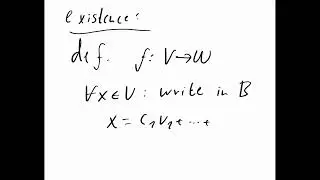 existence:
def. f: V→W
∀x∈V: write in B
x = c₁v₁ + ... +